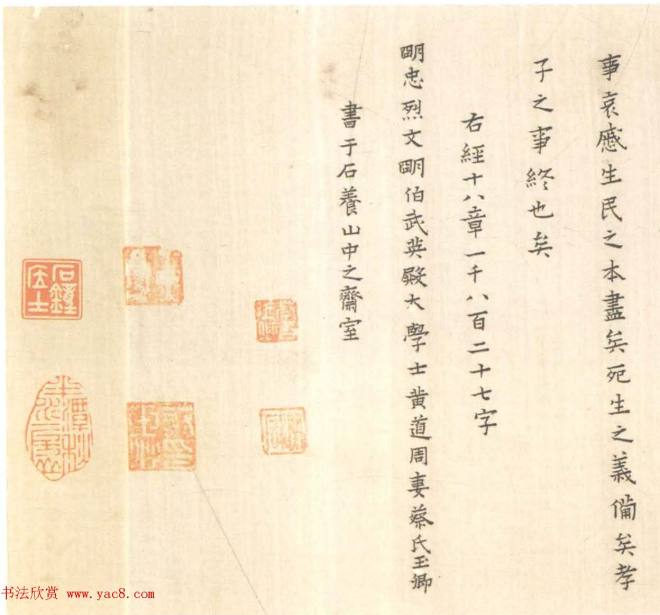 事哀慼生民之本盡矣死生之義備矣孝
子之事終也矣
右經十八章一千八百二十七字
明忠烈文明伯武英殿大學士黃道周妻蔡氏玉卿
書于石養山中之齋室
石鐘居士
书法欣赏 www.yac8.com